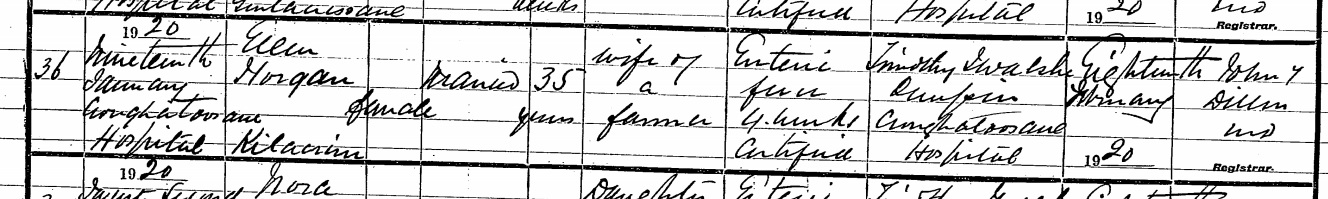 Hospital
weeks
Certified
Hospital
1920
MD
Registrar.
36
1920
Nineteenth
January
Coughatoosane
Hospital
Ellen
Horgan
Kilacrim
female
Married
35
years
wife of
a
farmer
Enteric
fever
4 weeks
Certified
Timothy Walshe
Coughatoosane
Hospital
Eighteenth
February
1920
John
Dillon
MD
Registrar.
1920
Nora
Daughter
Enteric